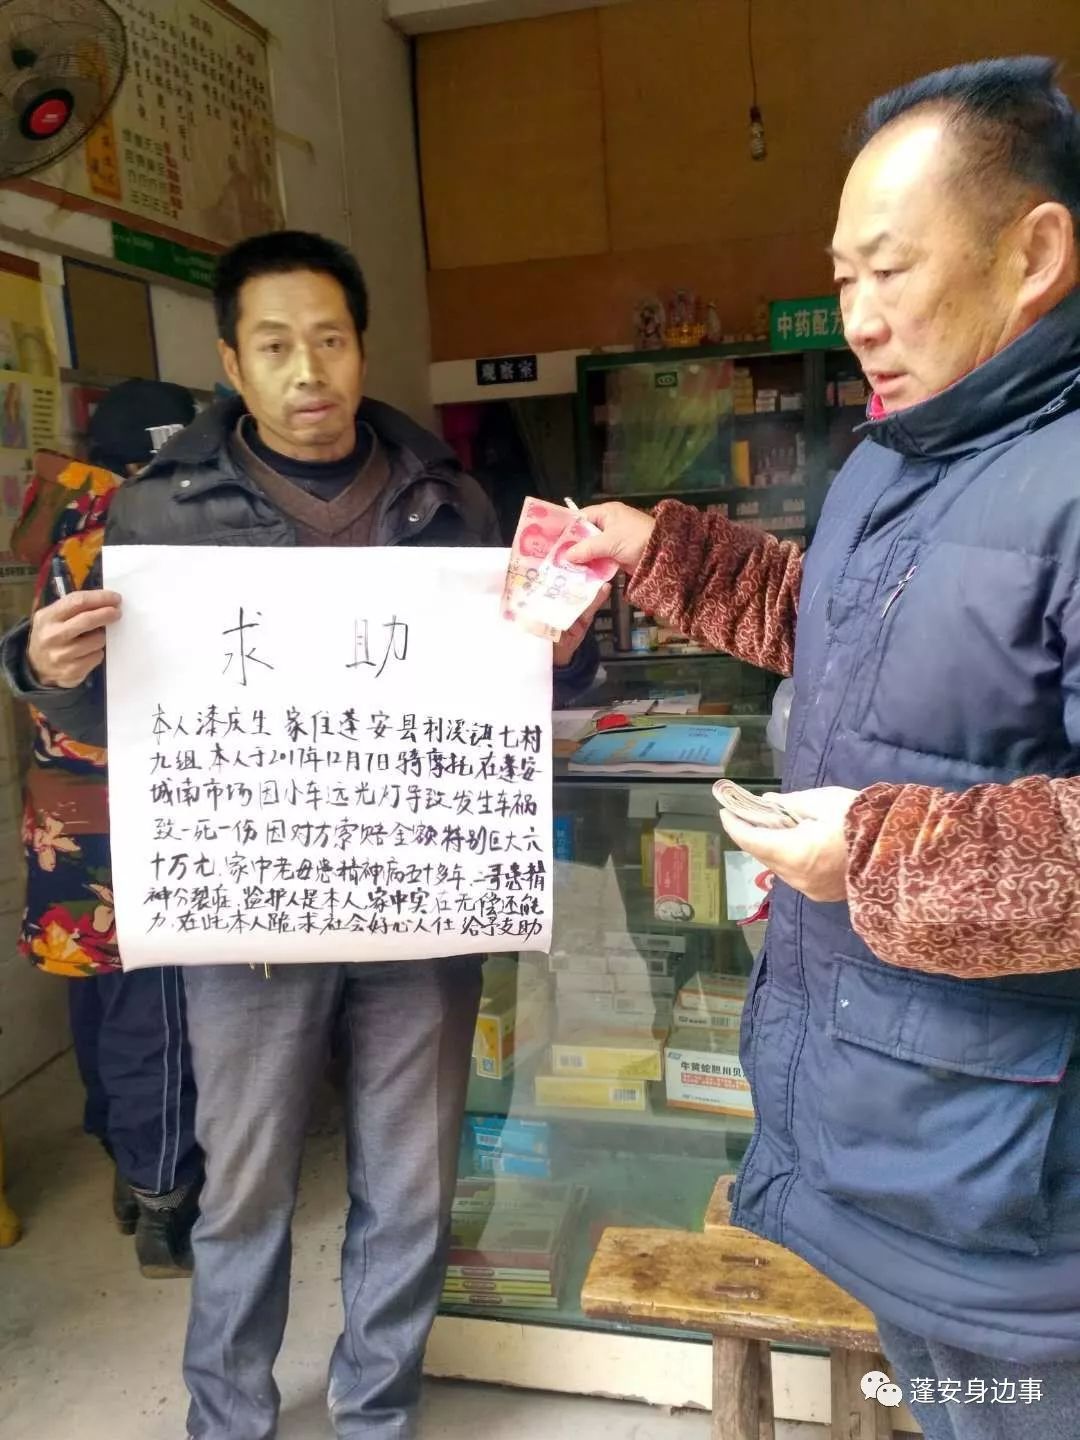 中药配方
观察室
求助
本人漆庆生 家住蓬安县利溪镇七村
九组.本人于2017年12月7日骑摩托在蓬安
城南市场因小车远光灯导致发生车祸
致一死一伤因对方索赔金额特别巨大六
十万元.家中老母患精神病五十多年,二哥患精
神分裂症,监护人是本人,家中实在无偿还能
力.在此本人跪求社会好心人仕给予支助
牛黄蛇胆川贝
蓬安身边事